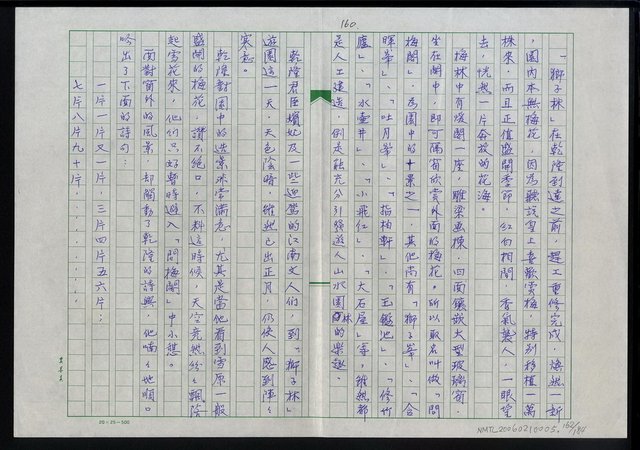 160
「獅子林」在乾隆到達之前，趕工重修完成，煥然一新
，園內本無梅花，因為聽說皇上喜歡賞梅，特別移植一萬
株來，而且正值盛開季節，紅白相間，香氣襲人，一眼望
去，恍如一片奔放的花海。
梅林中有煖閣一座，雕梁畫棟，四面鑲嵌大型玻璃窗，
坐在閣中，即可隔窗欣賞外面的梅花。所以取名叫做「問
梅閣」，為園中的十景之一，其他尚有「獅子峯」、「含
暉峯」、「吐月峯」、「指柏軒」、「玉鑑池」、「修竹
廬」、「水壺井」、「小飛虹」、「大石屋」等，雖然都
是人工建造，倒是能充分引發遊人山水園林的樂趣。
乾隆君臣嬪妃及一些迎駕的江南文人們，到「獅子林」
遊園這一天，天色陰晴，雖然已出正月，仍使人感到陣々
寒意。
乾隆對園中的造景非常滿意，尤其是當他看到雪原一般
盛開的梅花，讚不絕口，不料這時候，天空竟然紛々飄降
起雪花來，他們只好暫時避入「問梅閣」中小憩。
面對窗外的風景，卻觸動了乾隆的詩興，他喃々地順口
吟出了下面的詩句：
一片一片又一片，三片四片五六片；
七片八片九十片，…………
20×25=500
NMTL20060210005
152/184